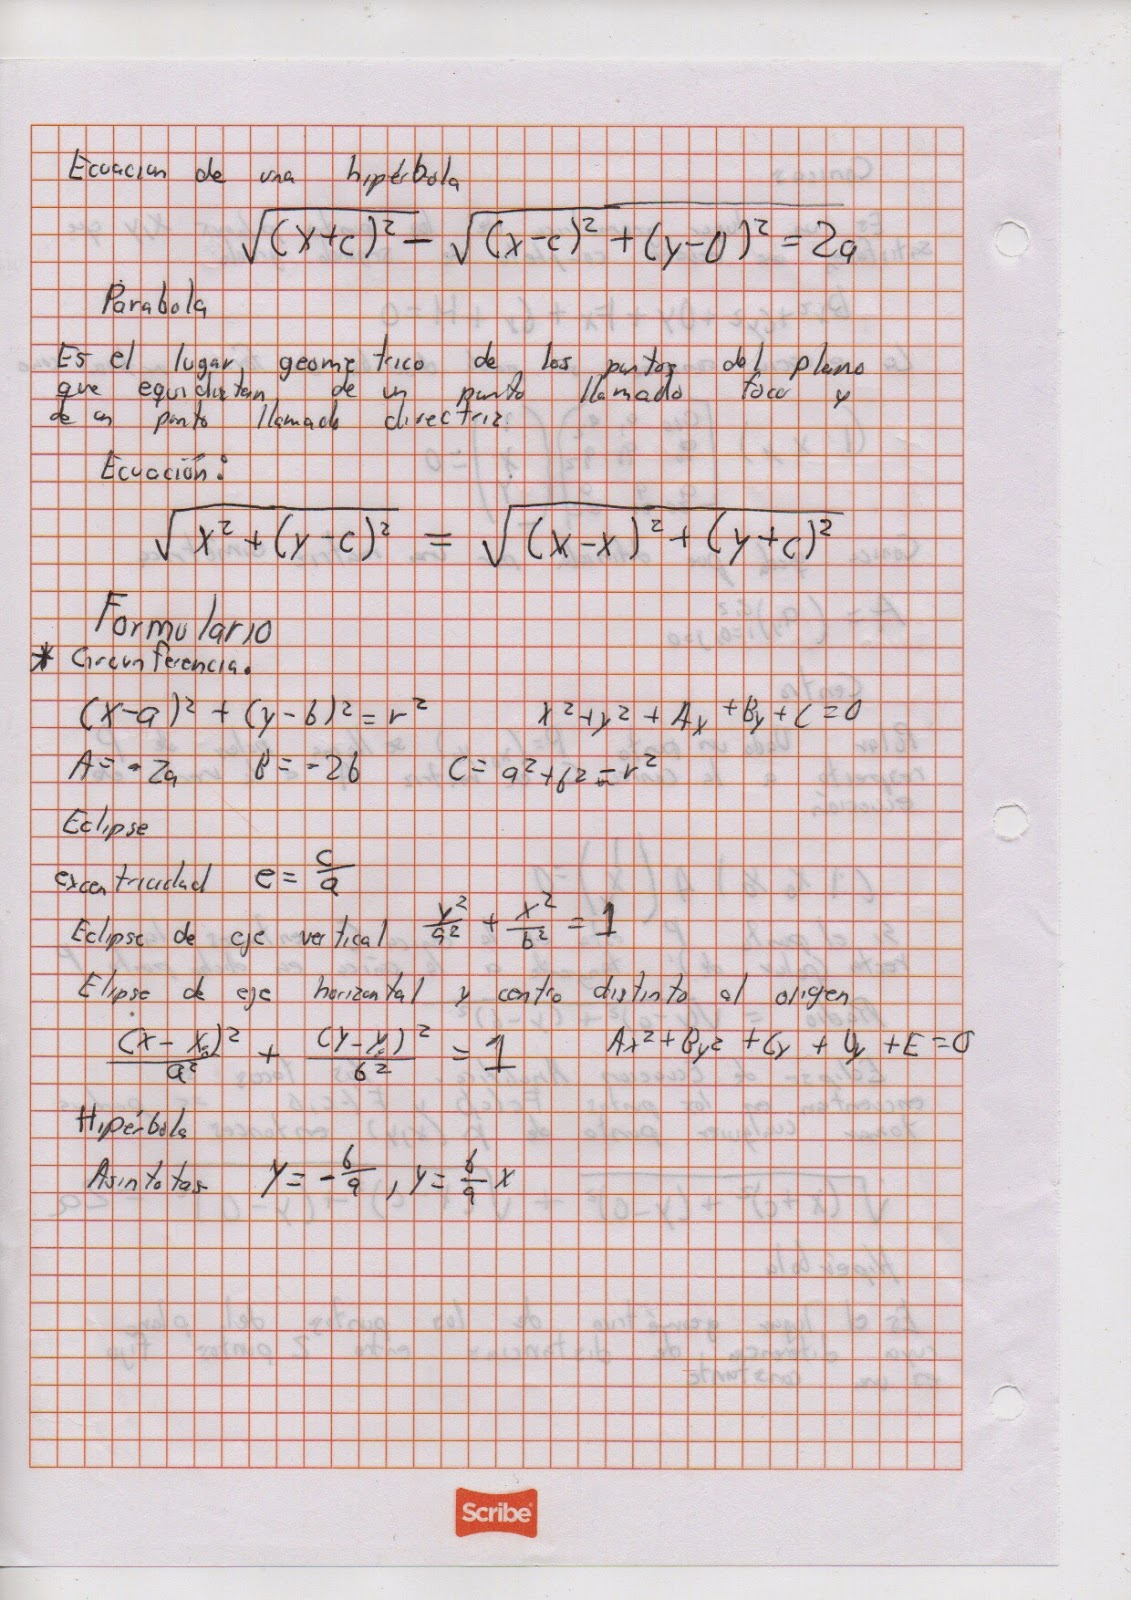 Ecuacion de una hipérbola
√(x+c)² - √(x-c)² + (y-0)² = 2a
Parabola
Es el lugar geometrico de los puntos del plano
que equidistan de un punto llamado foco y
de un punto llamado directriz.
Ecuación:
√x² + (y-c)² = √(x-x)² + (y+c)²
Formulario
* Circunferencia.
(x-a)² + (y-b)² = r² x²+y² + Ax + By + C = 0
A = -2a B = -2b C = a²+b² = r²
Eclipse
excentricidad e = c/a
Eclipse de eje vertical y²/a² + x²/b² = 1
Elipse de eje horizontal y centro distinto al origen
(x-x₀)²/a² + (y-y₀)²/b² = 1 Ax² + By² + Cy + Dy + E = 0
Hipérbola
Asintotas y = -b/a, y = b/a x
Scribe